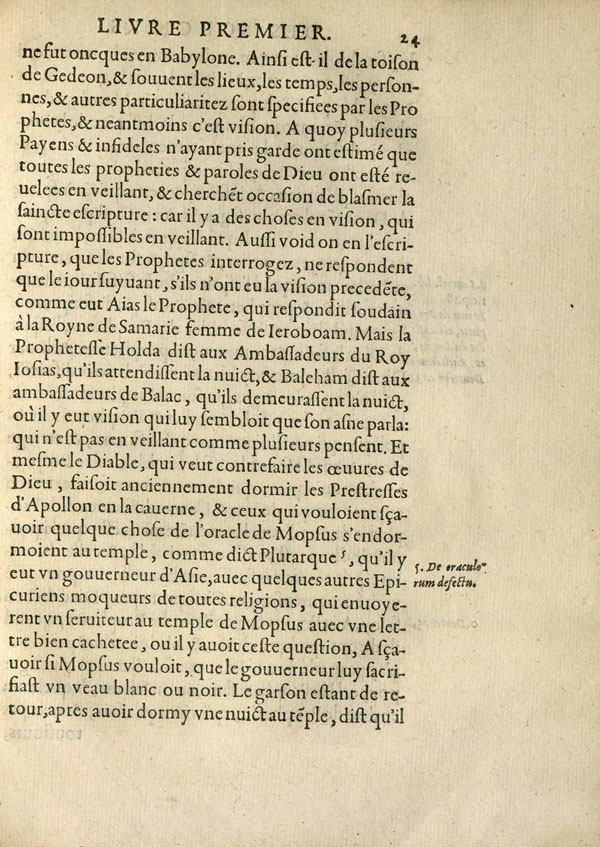 LIVRE PREMIER.
24
ne fut oncques en Babylone. Ainſi eſt-il de la toiſon
de Gedeon, & ſouuent les lieux, les temps, les perſon-
nes, & autres particuliaritez ſont ſpecifiees par les Pro
phetes, & neantmoins c'eſt viſion. A quoy pluſieurs
Payens & infideles n'ayant pris garde ont eſtimé que
toutes les propheties & paroles de Dieu ont eſté re-
uelees en veillant, & cherchẽt occaſion de blaſmer la
ſaincte eſcripture : car il y a des choſes en viſion, qui
ſont impoſſibles en veillant. Auſſi void on en l'eſcri-
pture, que les Prophetes interrogez, ne reſpondent
que le iour ſuyuant, s'ils n'ont eu la viſion precedẽte,
comme eut Aias le Prophete, qui reſpondit ſoudain
à la Royne de Samarie femme de Ieroboam. Mais la
Propheteſſe Holda diſt aux Ambaſſadeurs du Roy
Ioſias, qu'ils attendiſſent la nuict, & Baleham diſt aux
ambaſſadeurs de Balac, qu'ils demeuraſſent la nuict,
où il y eut viſion qui luy ſembloit que ſon aſne parla:
qui n'eſt pas en veillant comme pluſieurs penſent. Et
meſme le Diable, qui veut contrefaire les œuures de
Dieu, faiſoit anciennement dormir les Preſtreſſes
d'Apollon en la cauerne, & ceux qui vouloient ſça-
uoir quelque choſe de l'oracle de Mopſus s'endor-
moient au temple, comme dict Plutarque ⁵, qu'il y
eut vn gouuerneur d'Aſie, auec quelques autres Epi-
curiens moqueurs de toutes religions, qui enuoye-
rent vn ſeruiteur au temple de Mopſus auec vne let-
tre bien cachetee, ou il y auoit ceſte queſtion, A ſça-
uoir ſi Mopſus vouloit, que le gouuerneur luy ſacri-
fiaſt vn veau blanc ou noir. Le garſon eſtant de re-
tour, apres auoir dormy vne nuict au tẽple, diſt qu'il
5. De oraculo-
rum defectu.